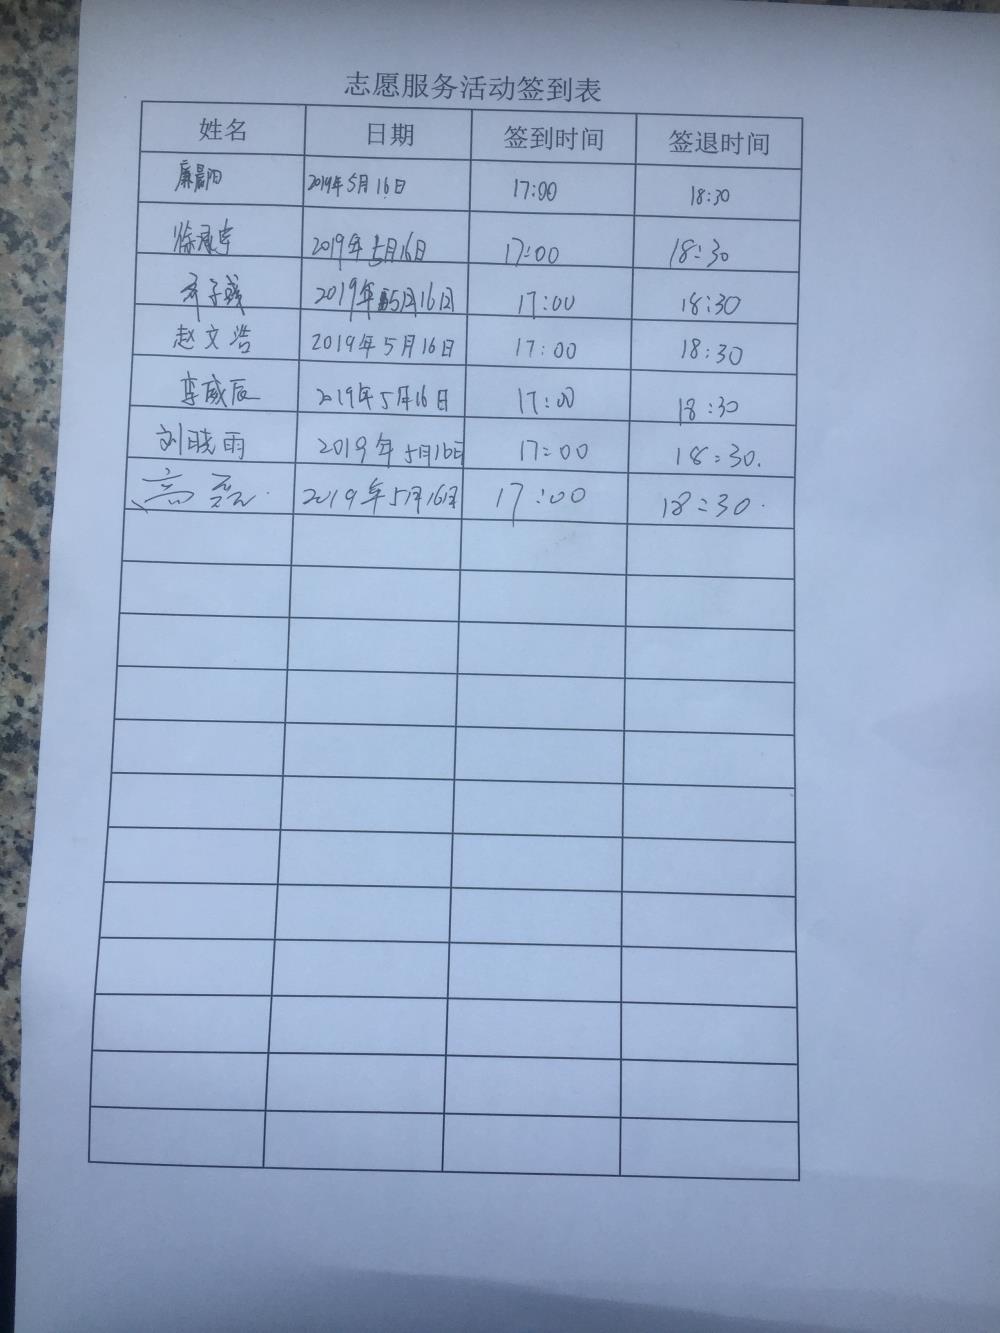 志愿服务活动签到表
姓名 日期 签到时间 签退时间
廉晨阳 2019年5月16日 17:00 18:30
徐承宇 2019年5月16日 17:00 18:30
2019年5月16日 17:00 18:30
赵文浩 2019年5月16日 17:00 18:30
李威辰 2019年5月16日 17:00 18:30
刘晓雨 2019年5月16日 17:00 18:30.
高磊 2019年5月16日 17:00 18:30.